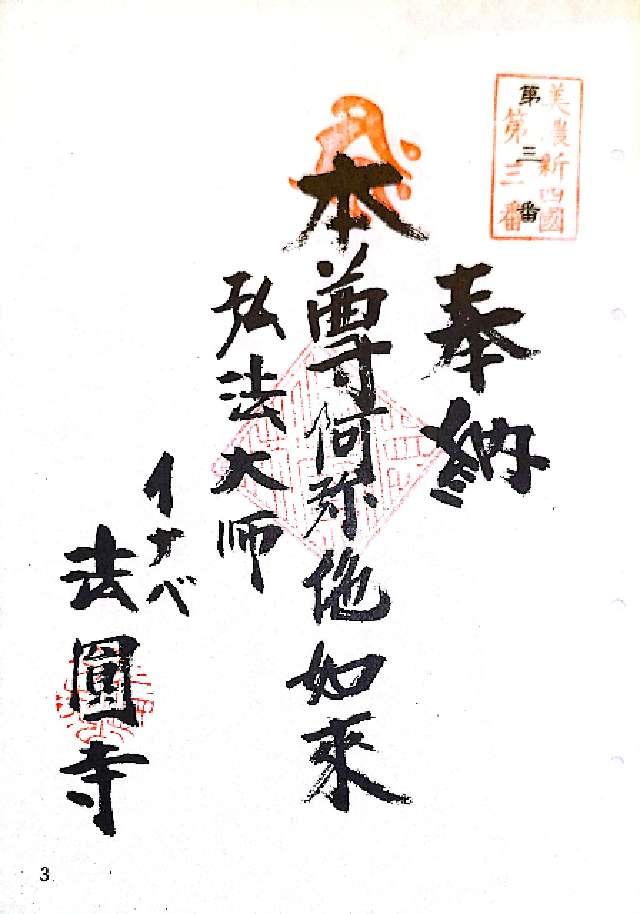 美濃新四國
第三番
第三番
奉納
本尊阿弥他如來
弘法大师
イナベ
法圓寺
3